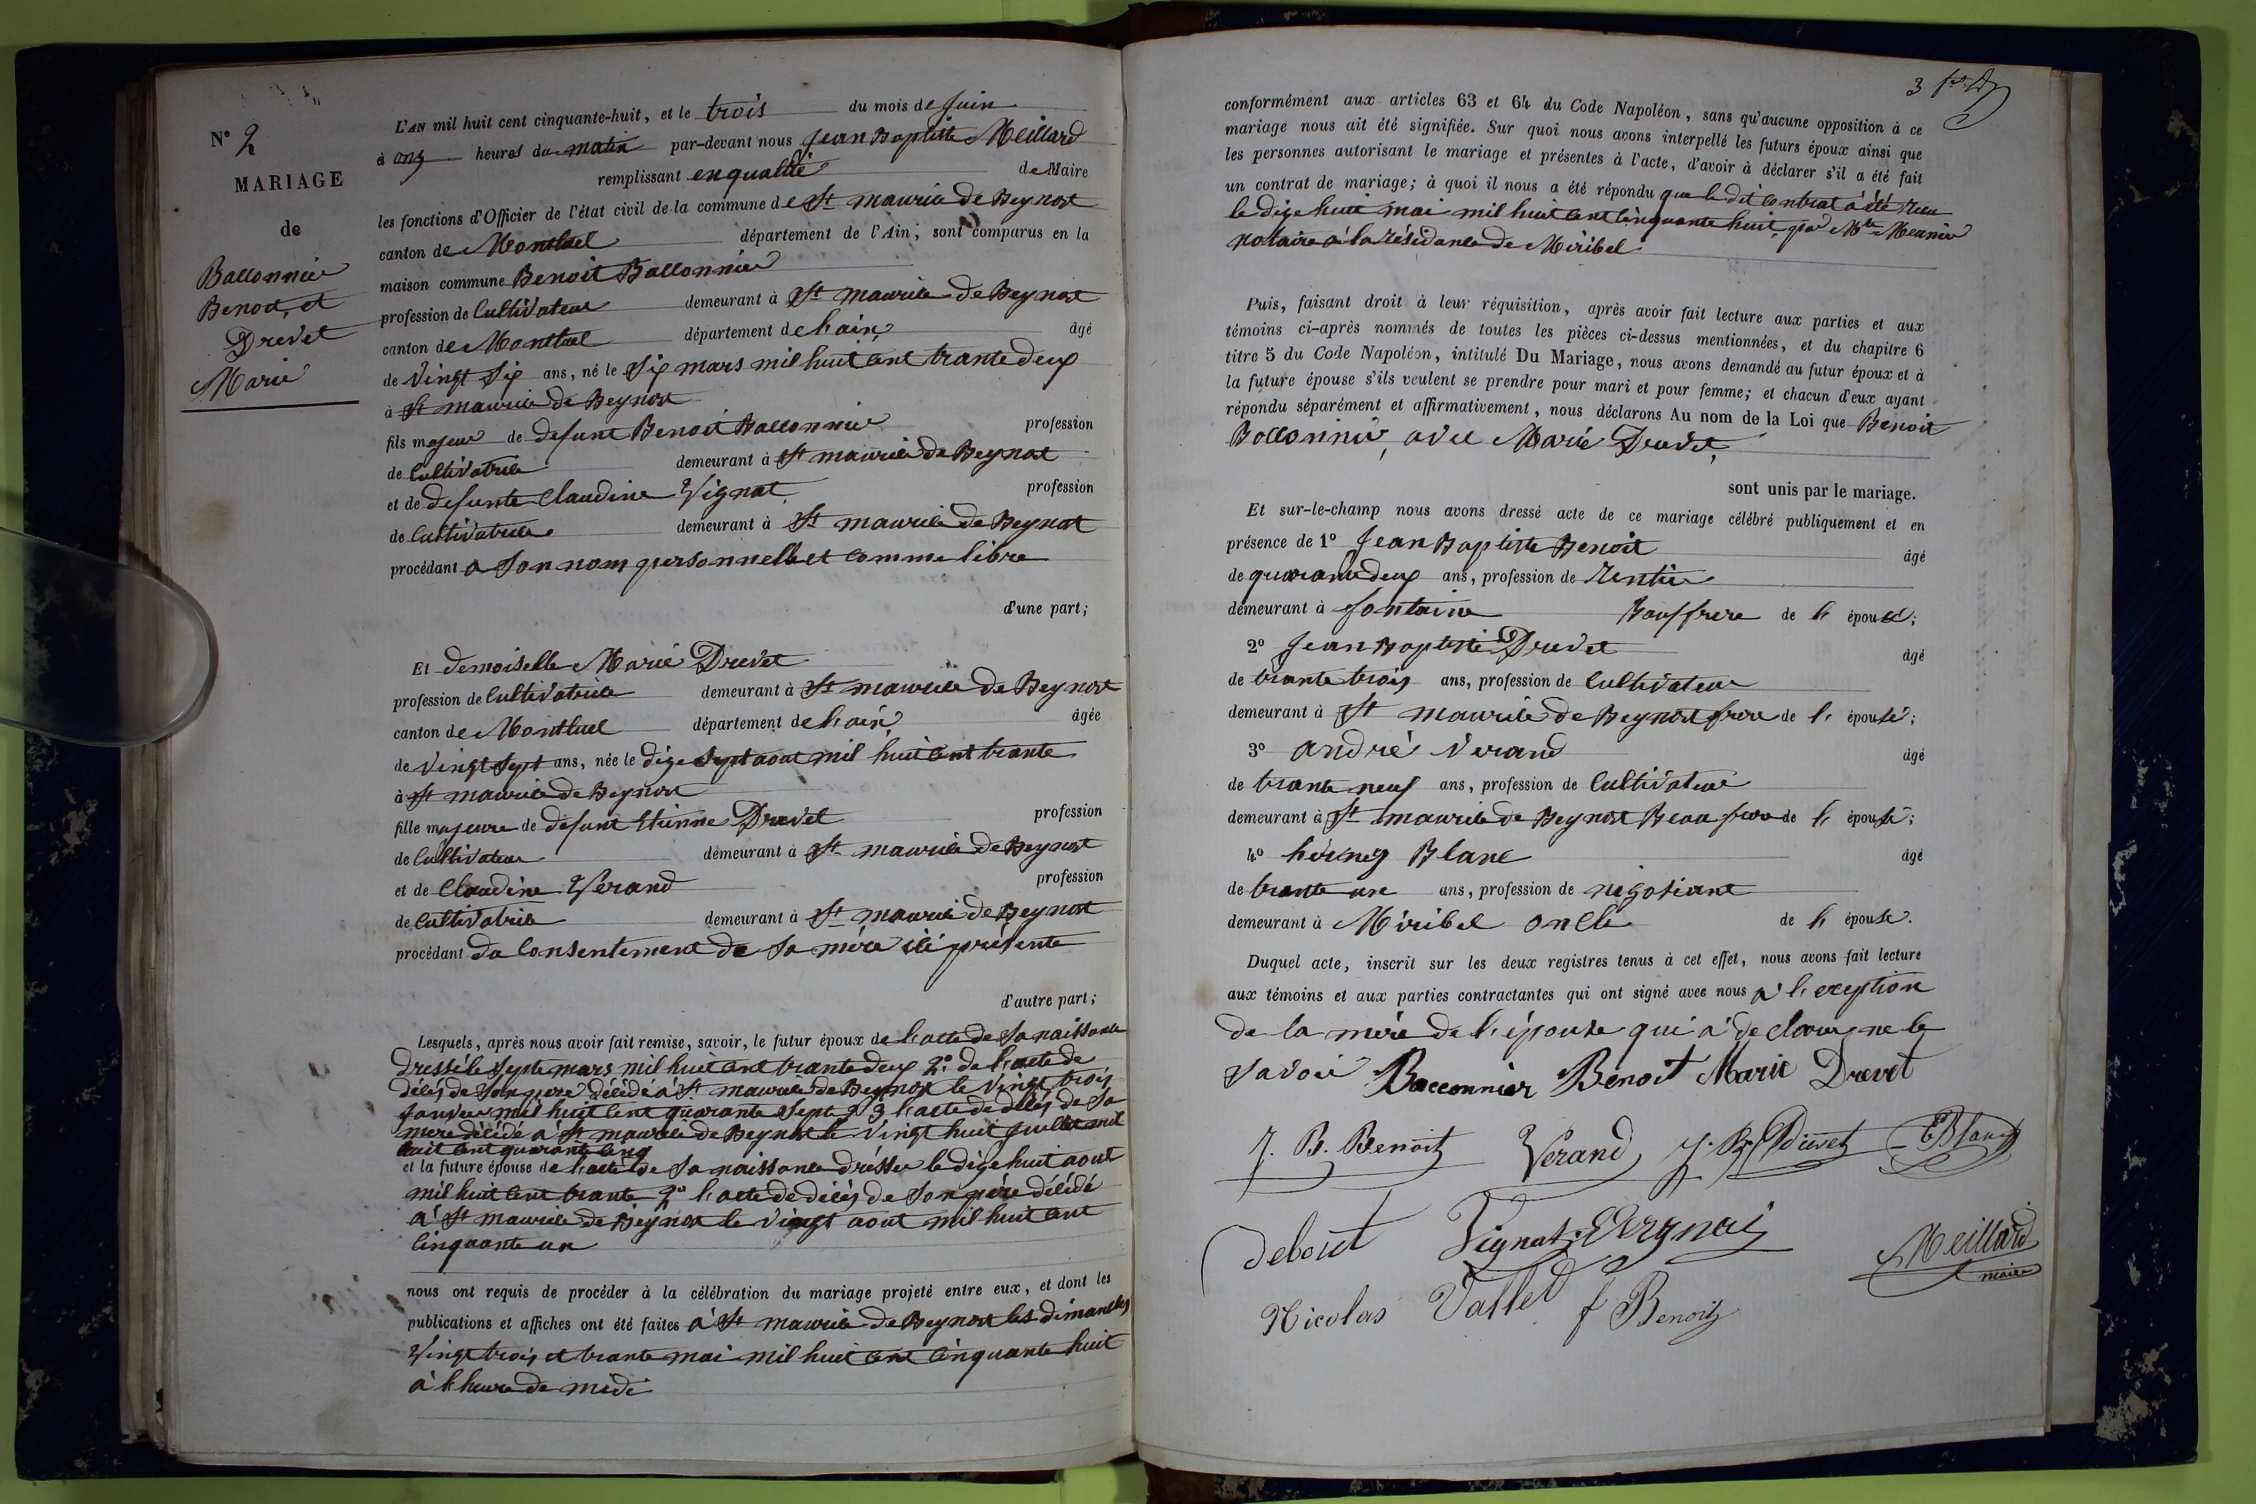 N° 2
MARIAGE
de
Bacconnier
Benoit, et
Drevet
Marie
L'AN mil huit cent cinquante-huit, et le trois du mois de Juin
à onz heures du matin par-devant nous Jean Baptiste Meillard
remplissant en qualité de Maire
les fonctions d'Officier de l'état civil de la commune de St maurice de Beynost
canton de Montluel département de l'Ain, sont comparus en la
maison commune Benoit Bacconnier
profession de Cultivateur demeurant à St maurice de Beynost
canton de Montluel département de l'ain, âgé
de Vingt Six ans, né le Six mars mil huit cent trante deux
à St maurice de Beynost
fils majeur de defunt Benoit Bacconnier profession
de Cultivatrice demeurant à St maurice de Beynost
et de defunte Claudine Vignat profession
de Cultivatrice demeurant à St maurice de Beynost
procédant a Son nom personnelle et comme libre
d'une part;
Et demoiselle Marie Drevet
profession de Cultivatrice demeurant à St maurice de Beynost
canton de Montluel département de l'ain, âgée
de Vingt Sept ans, née le dixe Sept aout mil huit cent trante
à St maurice de Beynost
fille majeure de defunt Etienne Drevet profession
de Cultivateur demeurant à St maurice de Beynost
et de Claudine Verand profession
de Cultivatrice demeurant à St maurice de Beynost
procédant du Consentement de Sa mère ici présente
d'autre part;
Lesquels, après nous avoir fait remise, savoir, le futur époux de l'acte de Sa naissance
Dressé le Septe mars mil huit cent trante deux 2° de l'acte de
décés de Son père décédé à St maurice de Beynost le Vingt trois
Janvier mil huit cent quarante Sept 3 l'acte de décés de Sa
mere décédé à St maurice de Beynost le Vingt huit Juillet mil
huit cent quarante cinq
et la future épouse de l'acte de Sa naissance drésser le dixe huit aout
mil huit cent trante 2° l'acte de décés de Son père décédé
à St maurice de Beynost le Vingt aout mil huit cent
Cinquante un
nous ont requis de procéder à la célébration du mariage projeté entre eux, et dont les
publications et affiches ont été faites à St maurice de Beynost les dimanches
Vingt trois et trante mai mil huit cent Cinquante huit
à l'heure de midi
3
conformément aux articles 63 et 64 du Code Napoléon, sans qu'aucune opposition à ce
mariage nous ait été signifiée. Sur quoi nous avons interpellé les futurs époux ainsi que
les personnes autorisant le mariage et présentes à l'acte, d'avoir à déclarer s'il a été fait
un contrat de mariage; à quoi il nous a été répondu que le dit contrat à été reçu
le dixe huit mai mil huit cent Cinquante huit, par Mtre Meunier
notaire à la résidance de Miribel
Puis, faisant droit à leur réquisition, après avoir fait lecture aux parties et aux
témoins ci-après nommés de toutes les pièces ci-dessus mentionnées, et du chapitre 6
titre 5 du Code Napoléon, intitulé Du Mariage, nous avons demandé au futur époux et à
la future épouse s'ils veulent se prendre pour mari et pour femme; et chacun d'eux ayant
répondu séparément et affirmativement, nous déclarons Au nom de la Loi que Benoit
Bacconnier, avec Marie Drevet,
sont unis par le mariage.
Et sur-le-champ nous avons dressé acte de ce mariage célébré publiquement et en
présence de 1° Jean Baptiste Benoit âgé
de quarante deux ans, profession de Rentier
demeurant à fontaine Bauffrere de l' épousé;
2° Jean Baptiste Drevet âgé
de trante trois ans, profession de Cultivateur
demeurant à St maurice de Beynost frere de l' épousé;
3° andré Verand âgé
de trante neuf ans, profession de Cultivateur
demeurant à St maurice de Beynost Beau frere de l' épouse;
4° Blanc âgé
de trante un ans, profession de négotiant
demeurant à Miribel oncle de l' épouse.
Duquel acte, inscrit sur les deux registres tenus à cet effet, nous avons fait lecture
aux témoins et aux parties contractantes qui ont signé avec nous à l'exeption
de la mère de l'épouse qui à declarer ne le
Savoir Bacconnier Benoit Marie Drevet
J. B. Benoit Verand J. B. Drevet Blanc
debout Vignat
Meillard
maire
Nicolas Vallet f Benoit